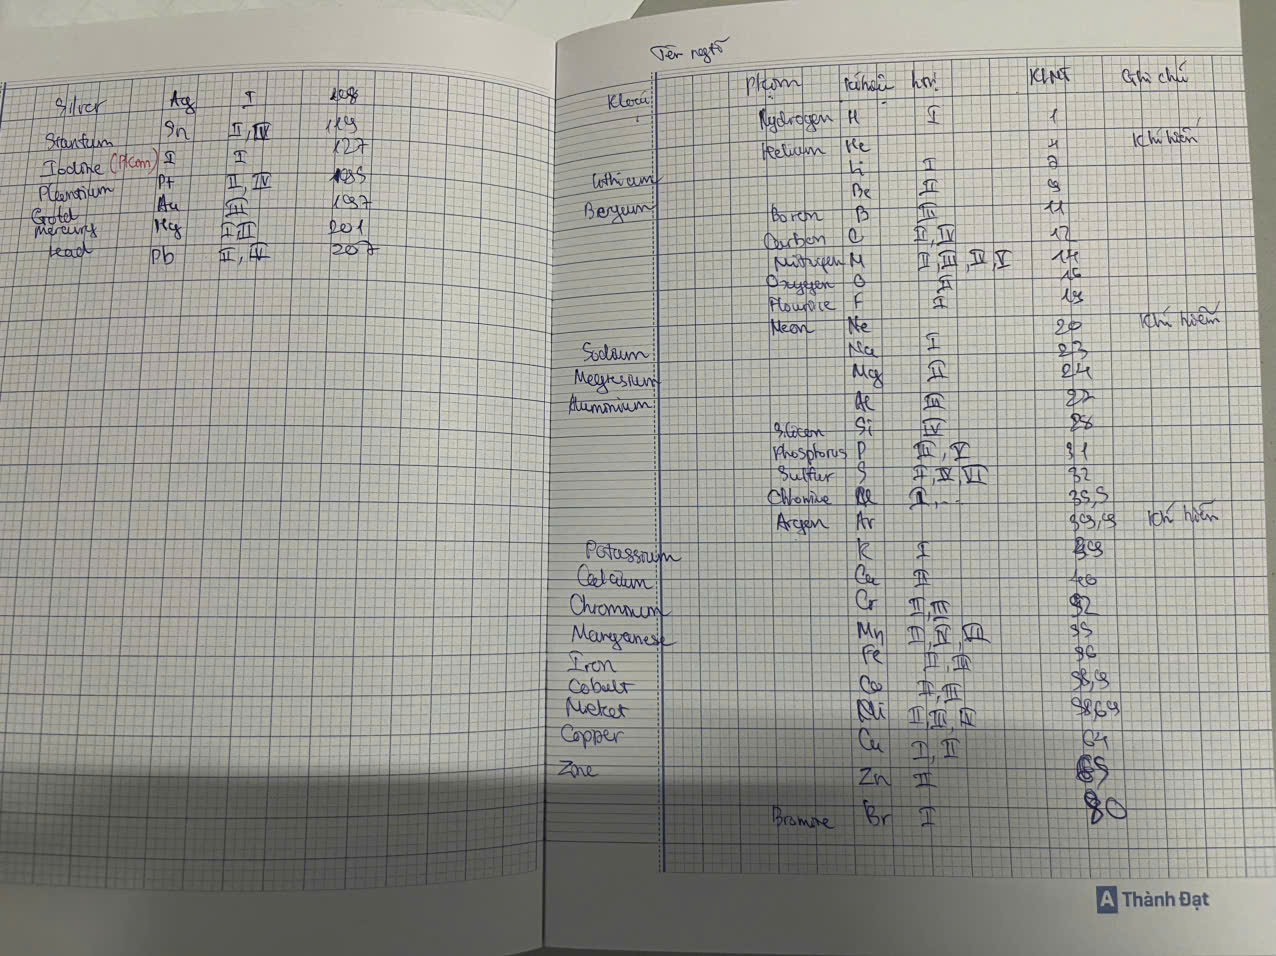 Silver Ag I 108
Stantum Sn II, IV 119
Iodine (Pkim) I I 127
Pt II, IV 195
Gold Au III 197
Mercury Hg I II 201
Lead Pb II, IV 207
Tên ngtố
Kloại Pkim Kí hiệu htrị KLNT Ghi chú
Hydrogen H I 1
Helium He 4 Khí hiếm
Lithium Li I 7
Be II 9
Boron B III 11
Carbon C II, IV 12
Nitrogen N II, III, IV, V 14
Oxygen O II 16
F I 19
Neon Ne 20 Khí hiếm
Sodium Na I 23
Magnesium Mg II 24
Aluminium Al III 27
Si IV 28
Phosphorus P III, V 31
Sulfur S II, IV, VI 32
Cl I,... 35,5
Argon Ar 39,9 Khí hiếm
Potassium K I 39
Calcium Ca II 40
Chromium Cr II, III 52
Manganese Mn II, IV, VII 55
Iron Fe II, III 56
Cobalt Co I, III 58,9
Nickel Ni II, III, IV 58,69
Copper Cu I, II 64
Zinc Zn II 65
Bromine Br I 80
A Thành Đạt